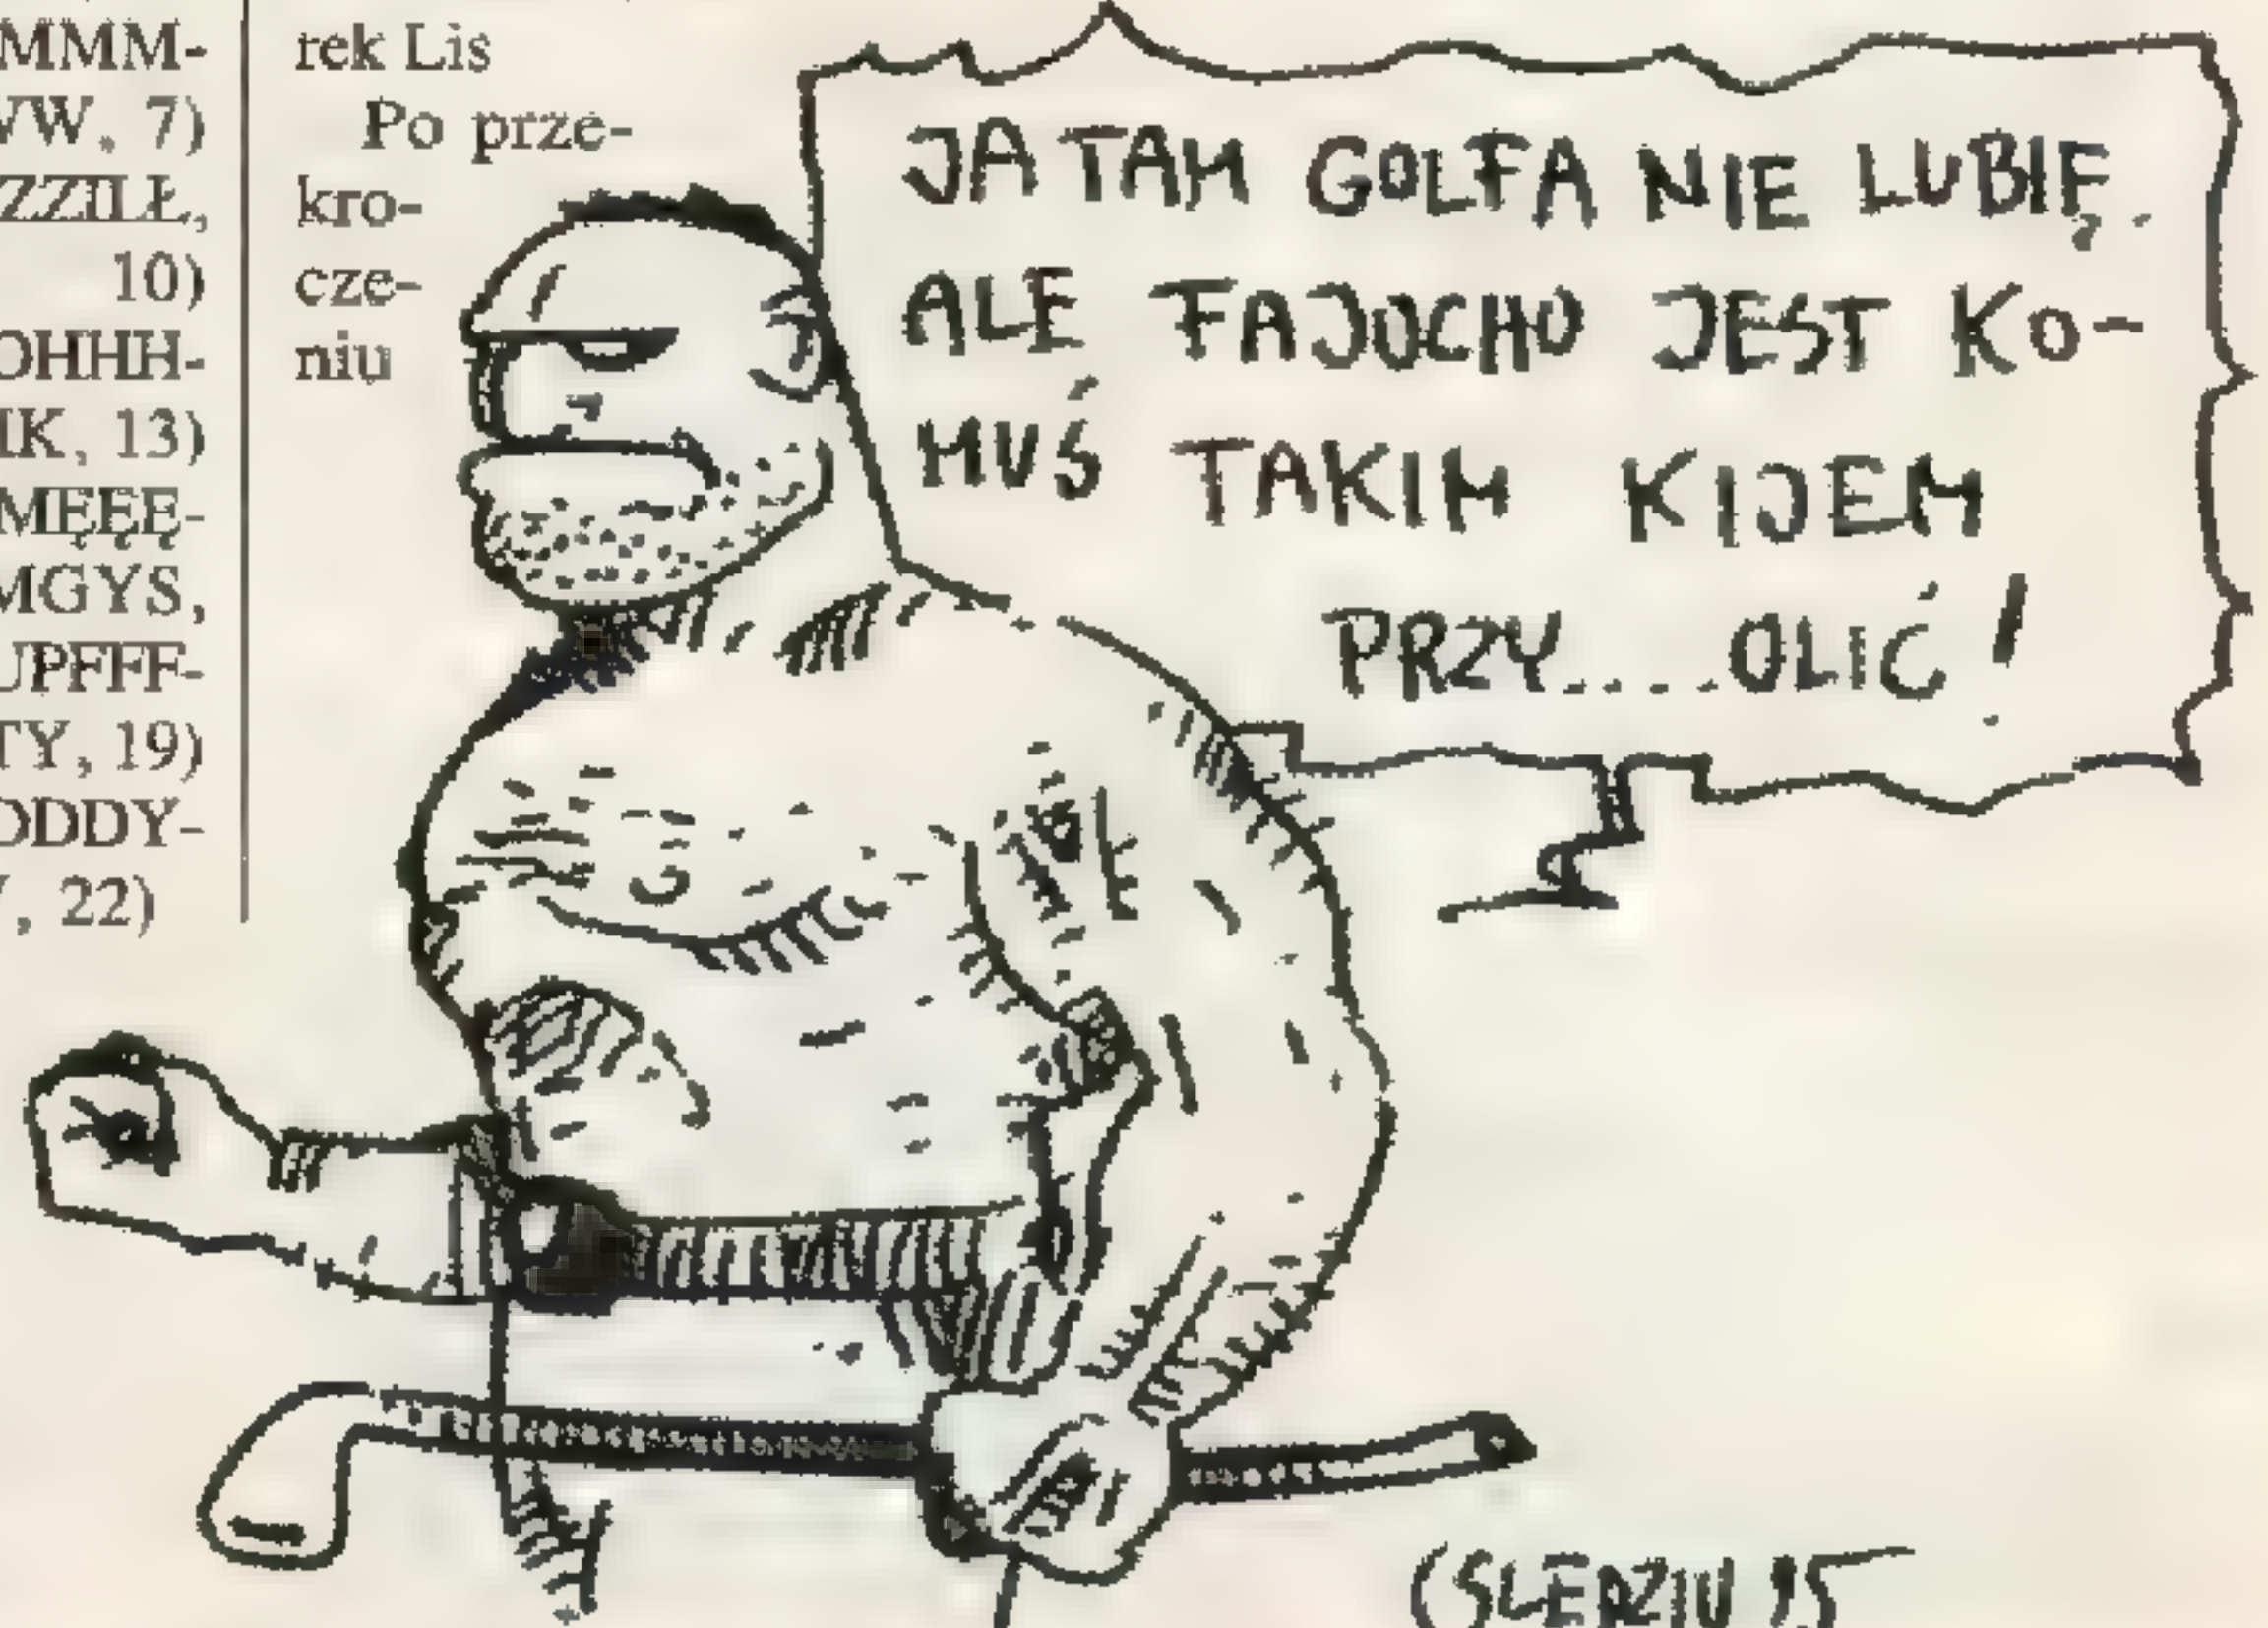 MMM-
WW, 7)
ZZZIŁŁ,
10)
OHHH-
IK, 13)
MĘĘĘ-
MGYS,
UPFFF-
TY, 19)
DDDY-
, 22)
rek Lis
Po prze-
kro-
cze-
niu
JA TAM GOLFA NIE LUBIĘ.
ALE FAJOCHO JEST KO-
MUŚ TAKIM KIJEM
PRZY.....OLIĆ!
(ŚLEDZIU 95